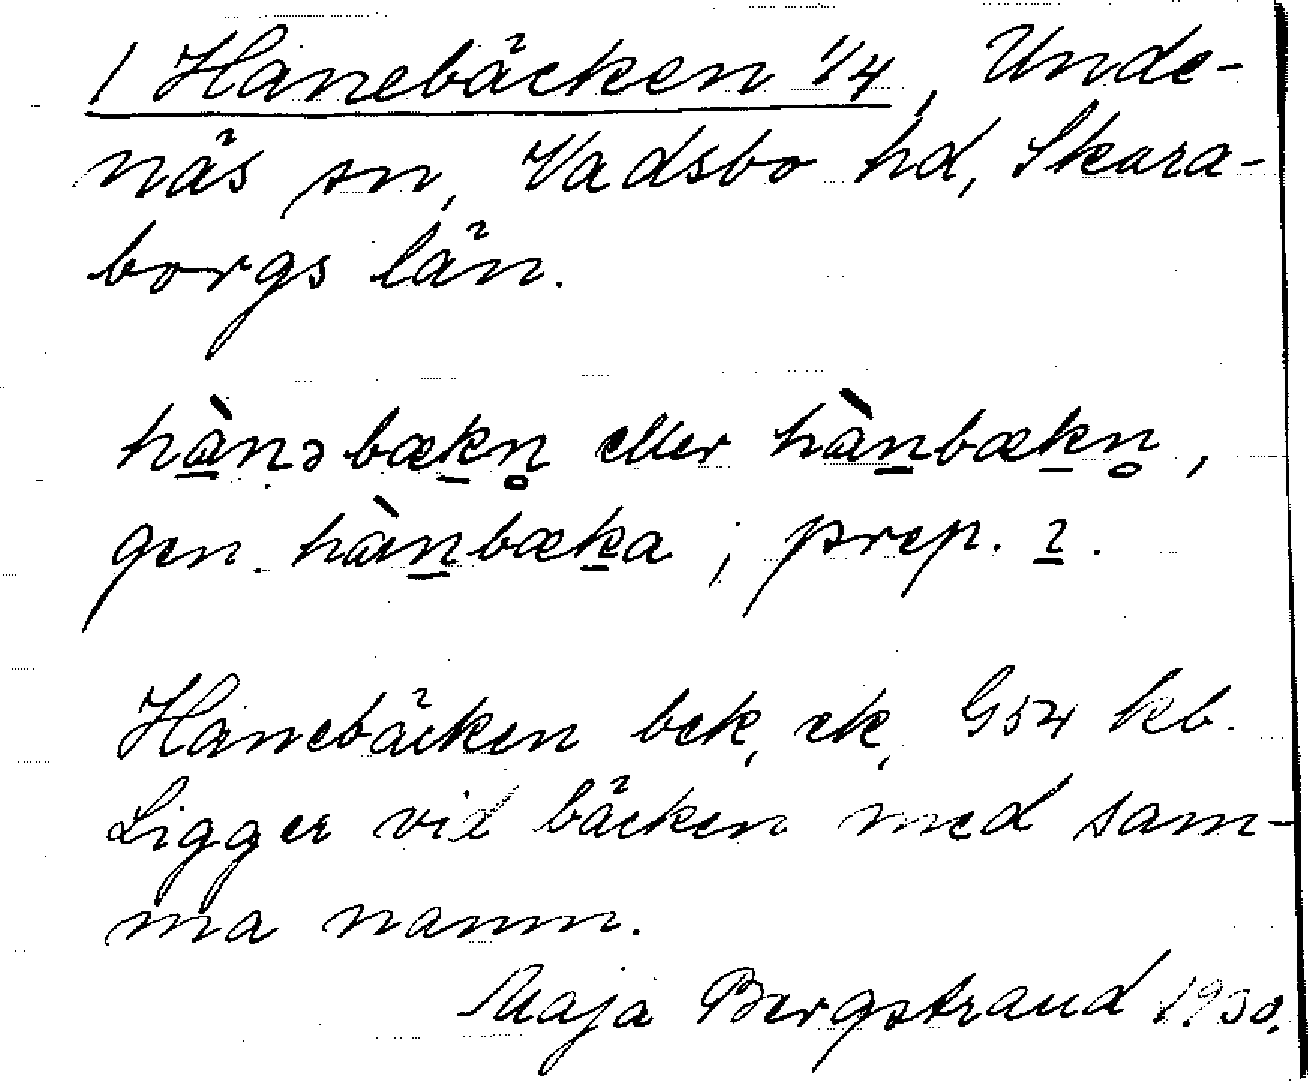 1 Hanebäcken 1/4, Unde-
näs sn, Vadsbo hd, Skara-
borgs län.
hànəbækn̥ eller hànbækn̥,
gen. hànbæka; prep. ɩ.
Hanebäcken bek, ek, G54 kb.
Ligger vid bäcken med sam-
ma namn.
Maja Bergstrand 1930.